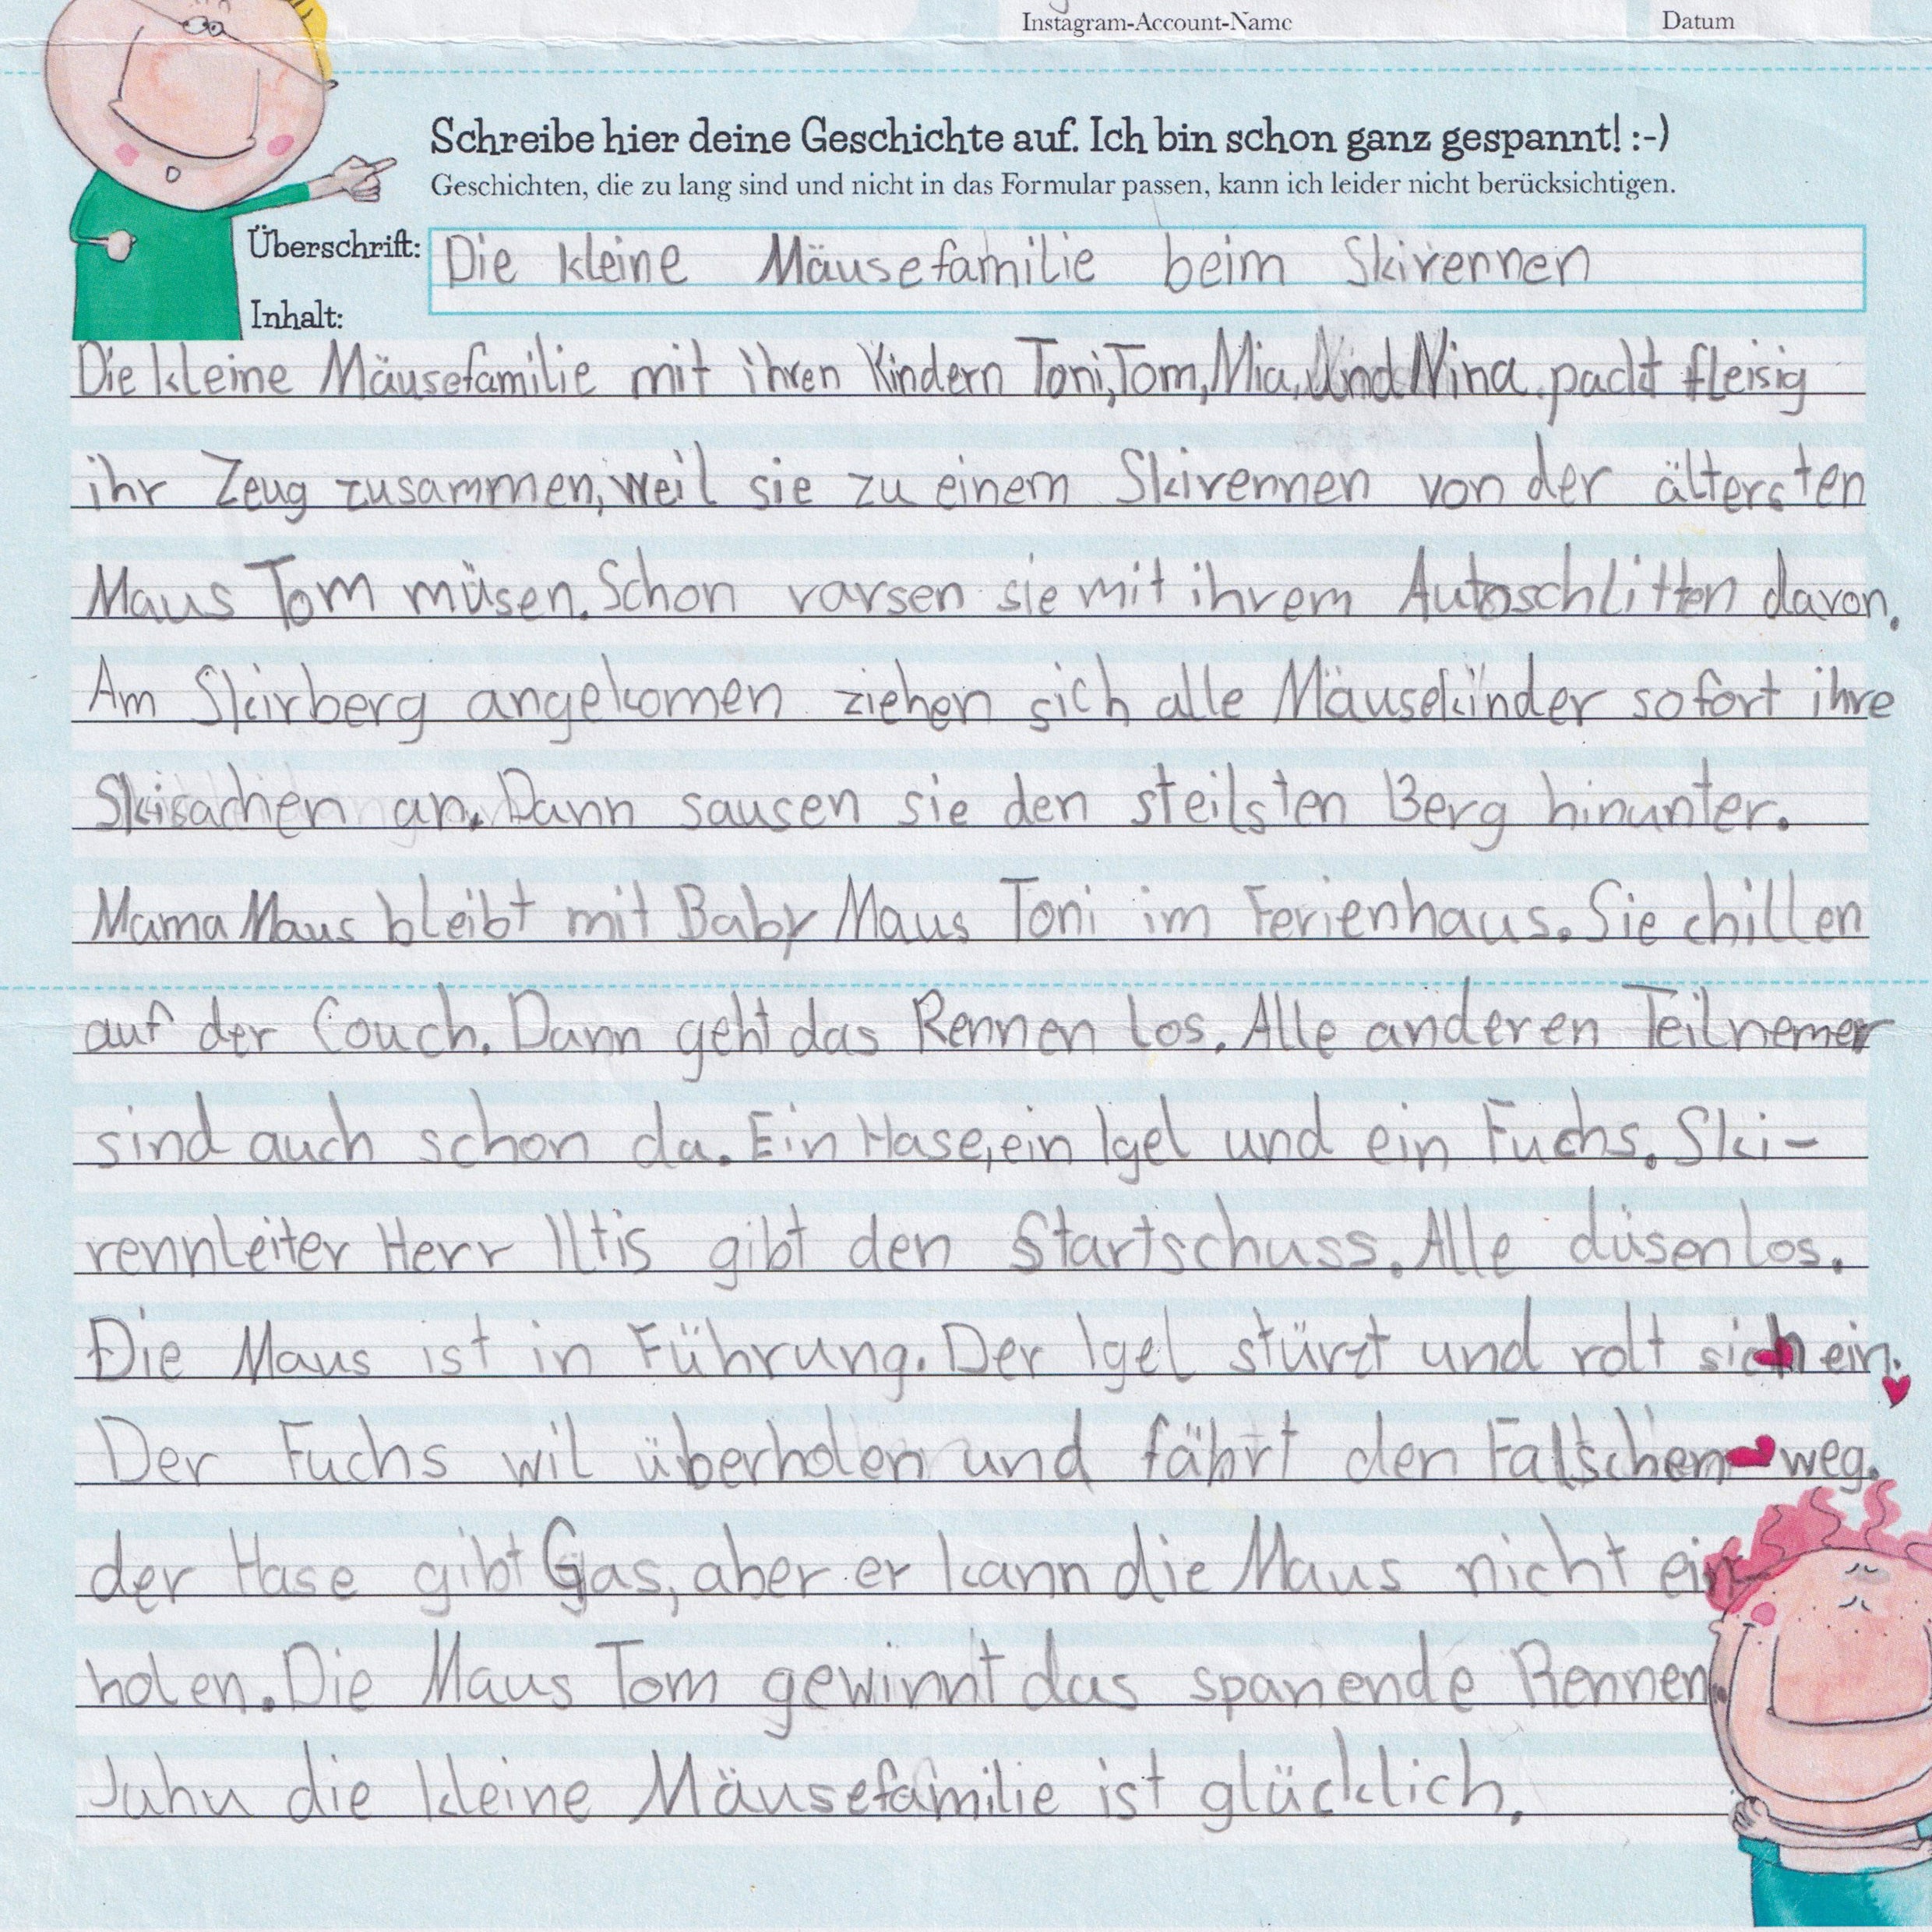 Instagram-Account-Name
Datum
Schreibe hier deine Geschichte auf. Ich bin schon ganz gespannt! :-)
Geschichten, die zu lang sind und nicht in das Formular passen, kann ich leider nicht berücksichtigen.
Überschrift: Die kleine Mäusefamilie beim Skirennen
Inhalt:
Die kleine Mäusefamilie mit ihren Kindern Toni, Tom, Mia, und Nina. packt fleisig
ihr Zeug zusammen, weil sie zu einem Skirennen von der ältersten
Maus Tom müsen. Schon rarsen sie mit ihrem Autoschlitten davon.
Am Skirberg angekomen ziehen sich alle Mäusekinder sofort ihre
Skisachen an. Dann sausen sie den steilsten Berg hinunter.
Mama Maus bleibt mit Baby Maus Toni im Ferienhaus. Sie chillen
auf der Couch. Dann geht das Rennen los. Alle anderen Teilnemer
sind auch schon da. Ein Hase, ein Igel und ein Fuchs. Ski-
rennleiter Herr Iltis gibt den Startschuss. Alle düsen los.
Die Maus ist in Führung. Der Igel stürzt und rolt sich ein.
Der Fuchs wil überholen und fährt den Falschen weg.
der Hase gibt Gas, aber er kann die Maus nicht ein
holen. Die Maus Tom gewinnt das spanende Rennen.
Juhu die kleine Mäusefamilie ist glücklich.